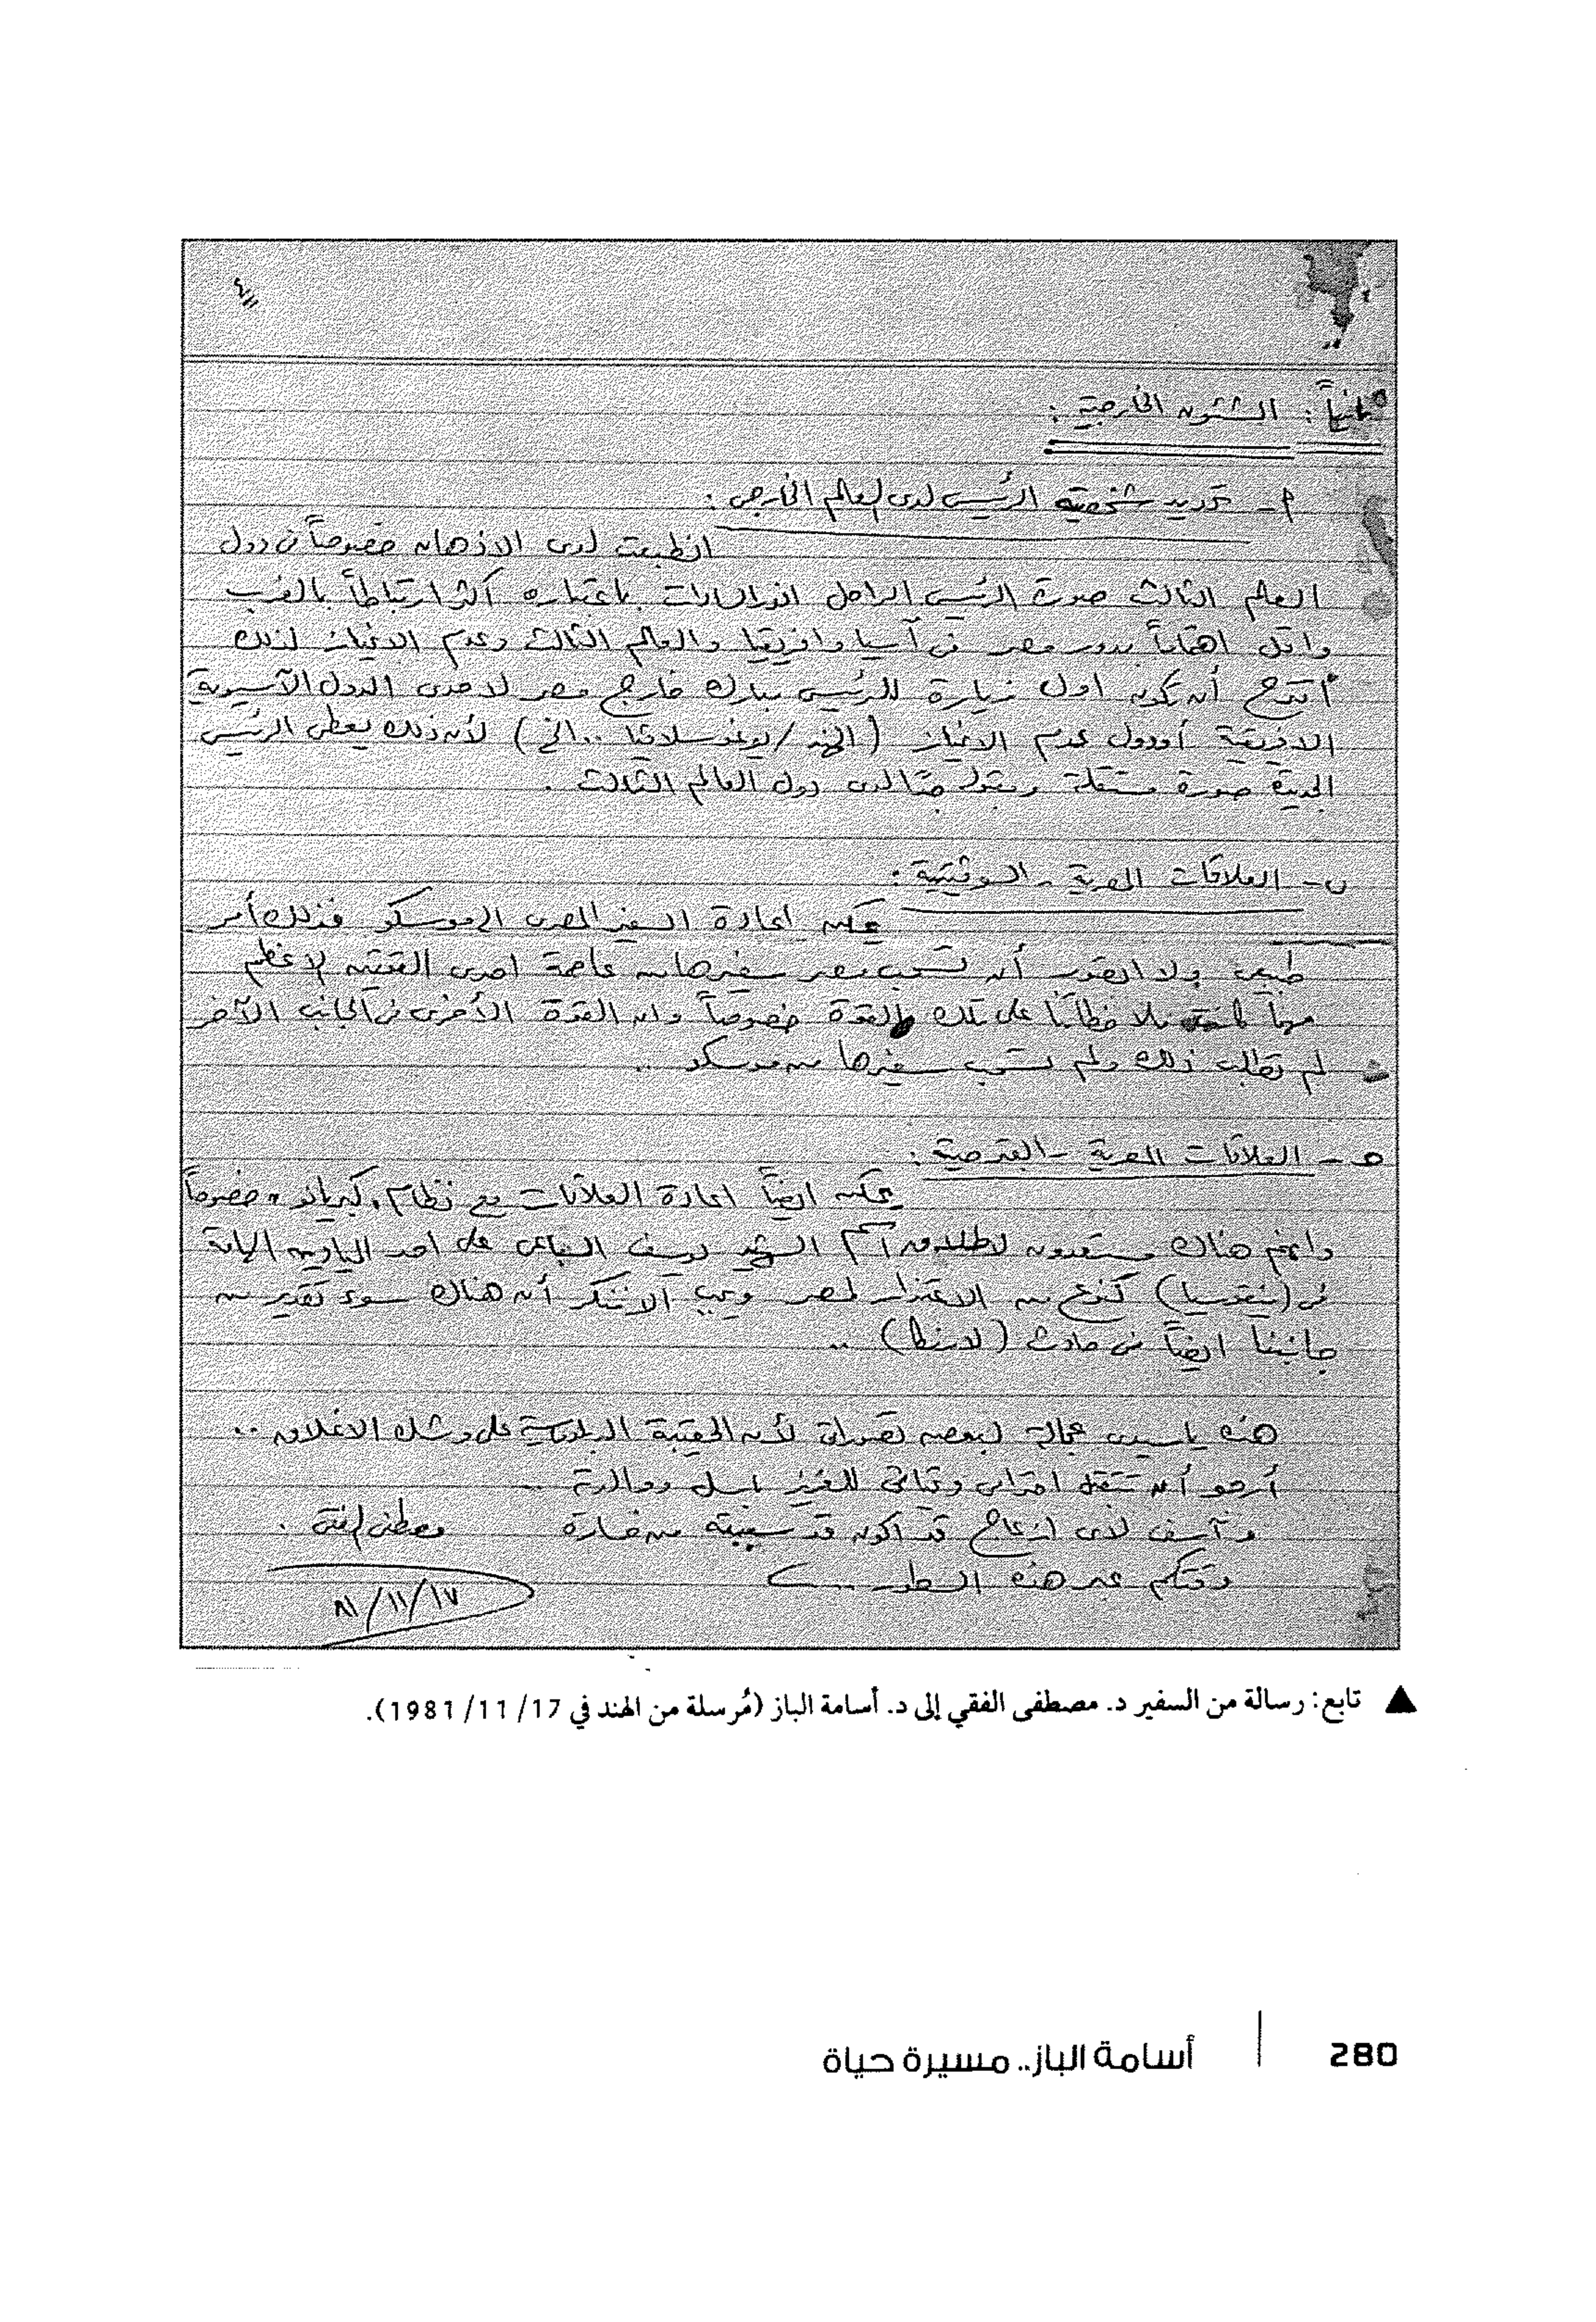 ٤
ثانياً : الشئون الخارجية :
أ - تحديد شخصية الرئيس لدى العالم الخارجى :
انطبعت لدى الاذهان خصوصاً فى دول
العالم الثالث صورة الرئيس الراحل انور السادات باعتباره أكثر ارتباطاً بالغرب
واقل اهتماماً بدور مصر فى آسيا وافريقيا والعالم الثالث وعدم الانحياز لذلك
أقترح أن تكون اول زيارة للرئيس مبارك خارج مصر لاحدى الدول الآسيوية
الافريقية أو دول عدم الانحياز (الهند / يوغوسلافيا .. الخ) لأن ذلك يعطى الرئيس
الجديد صورة مستقلة ومقبولة جداً لدى دول العالم الثالث .
ب - العلاقات المصرية - السوفيتية :
يمكن اعادة السفير المصرى الى موسكو فذلك أمر
طبيعى ولا يعقل أن تسحب مصر سفيرها من عاصمة احدى القوتين الاعظم
مهما كانت ملاحظاتنا على تلك القوة خصوصاً وان القوة الأخرى فى الجانب الآخر
لم تطلب ذلك ولم تسحب سفيرها من موسكو ..
هـ - العلاقات المصرية - القبرصية :
يمكن ايضاً اعادة العلاقات مع نظام "كبريانو" خصوصاً
وانهم هناك مستعدون لاطلاق اسم الشهيد يوسف السباعى على احد الميادين الهامة
فى (نيقوسيا) كنوع من الاعتذار لمصر ويجب ألا ننكر أن هناك سوء تقدير من
جانبنا ايضاً فى حادث (لارنكا) ..
هذه يا سيدى عجالة لبعض تصوراتى لأن الحقيبة الدبلوماسية على وشك الاغلاق ..
أرجو أن تتقبل احترامى وتحياتى للعزيز باسل ووالدته ..
وآسف لاى ازعاج قد اكون قد سببته من خسارة
وقتكم عبر هذه السطور ...
مصطفى الفقى .
٨١/١١/١٧
▲ تابع: رسالة من السفير د. مصطفى الفقي إلى د. أسامة الباز (مُرسلة من الهند في 17/ 11/ 1981).
280 | أسامة الباز.. مسيرة حياة